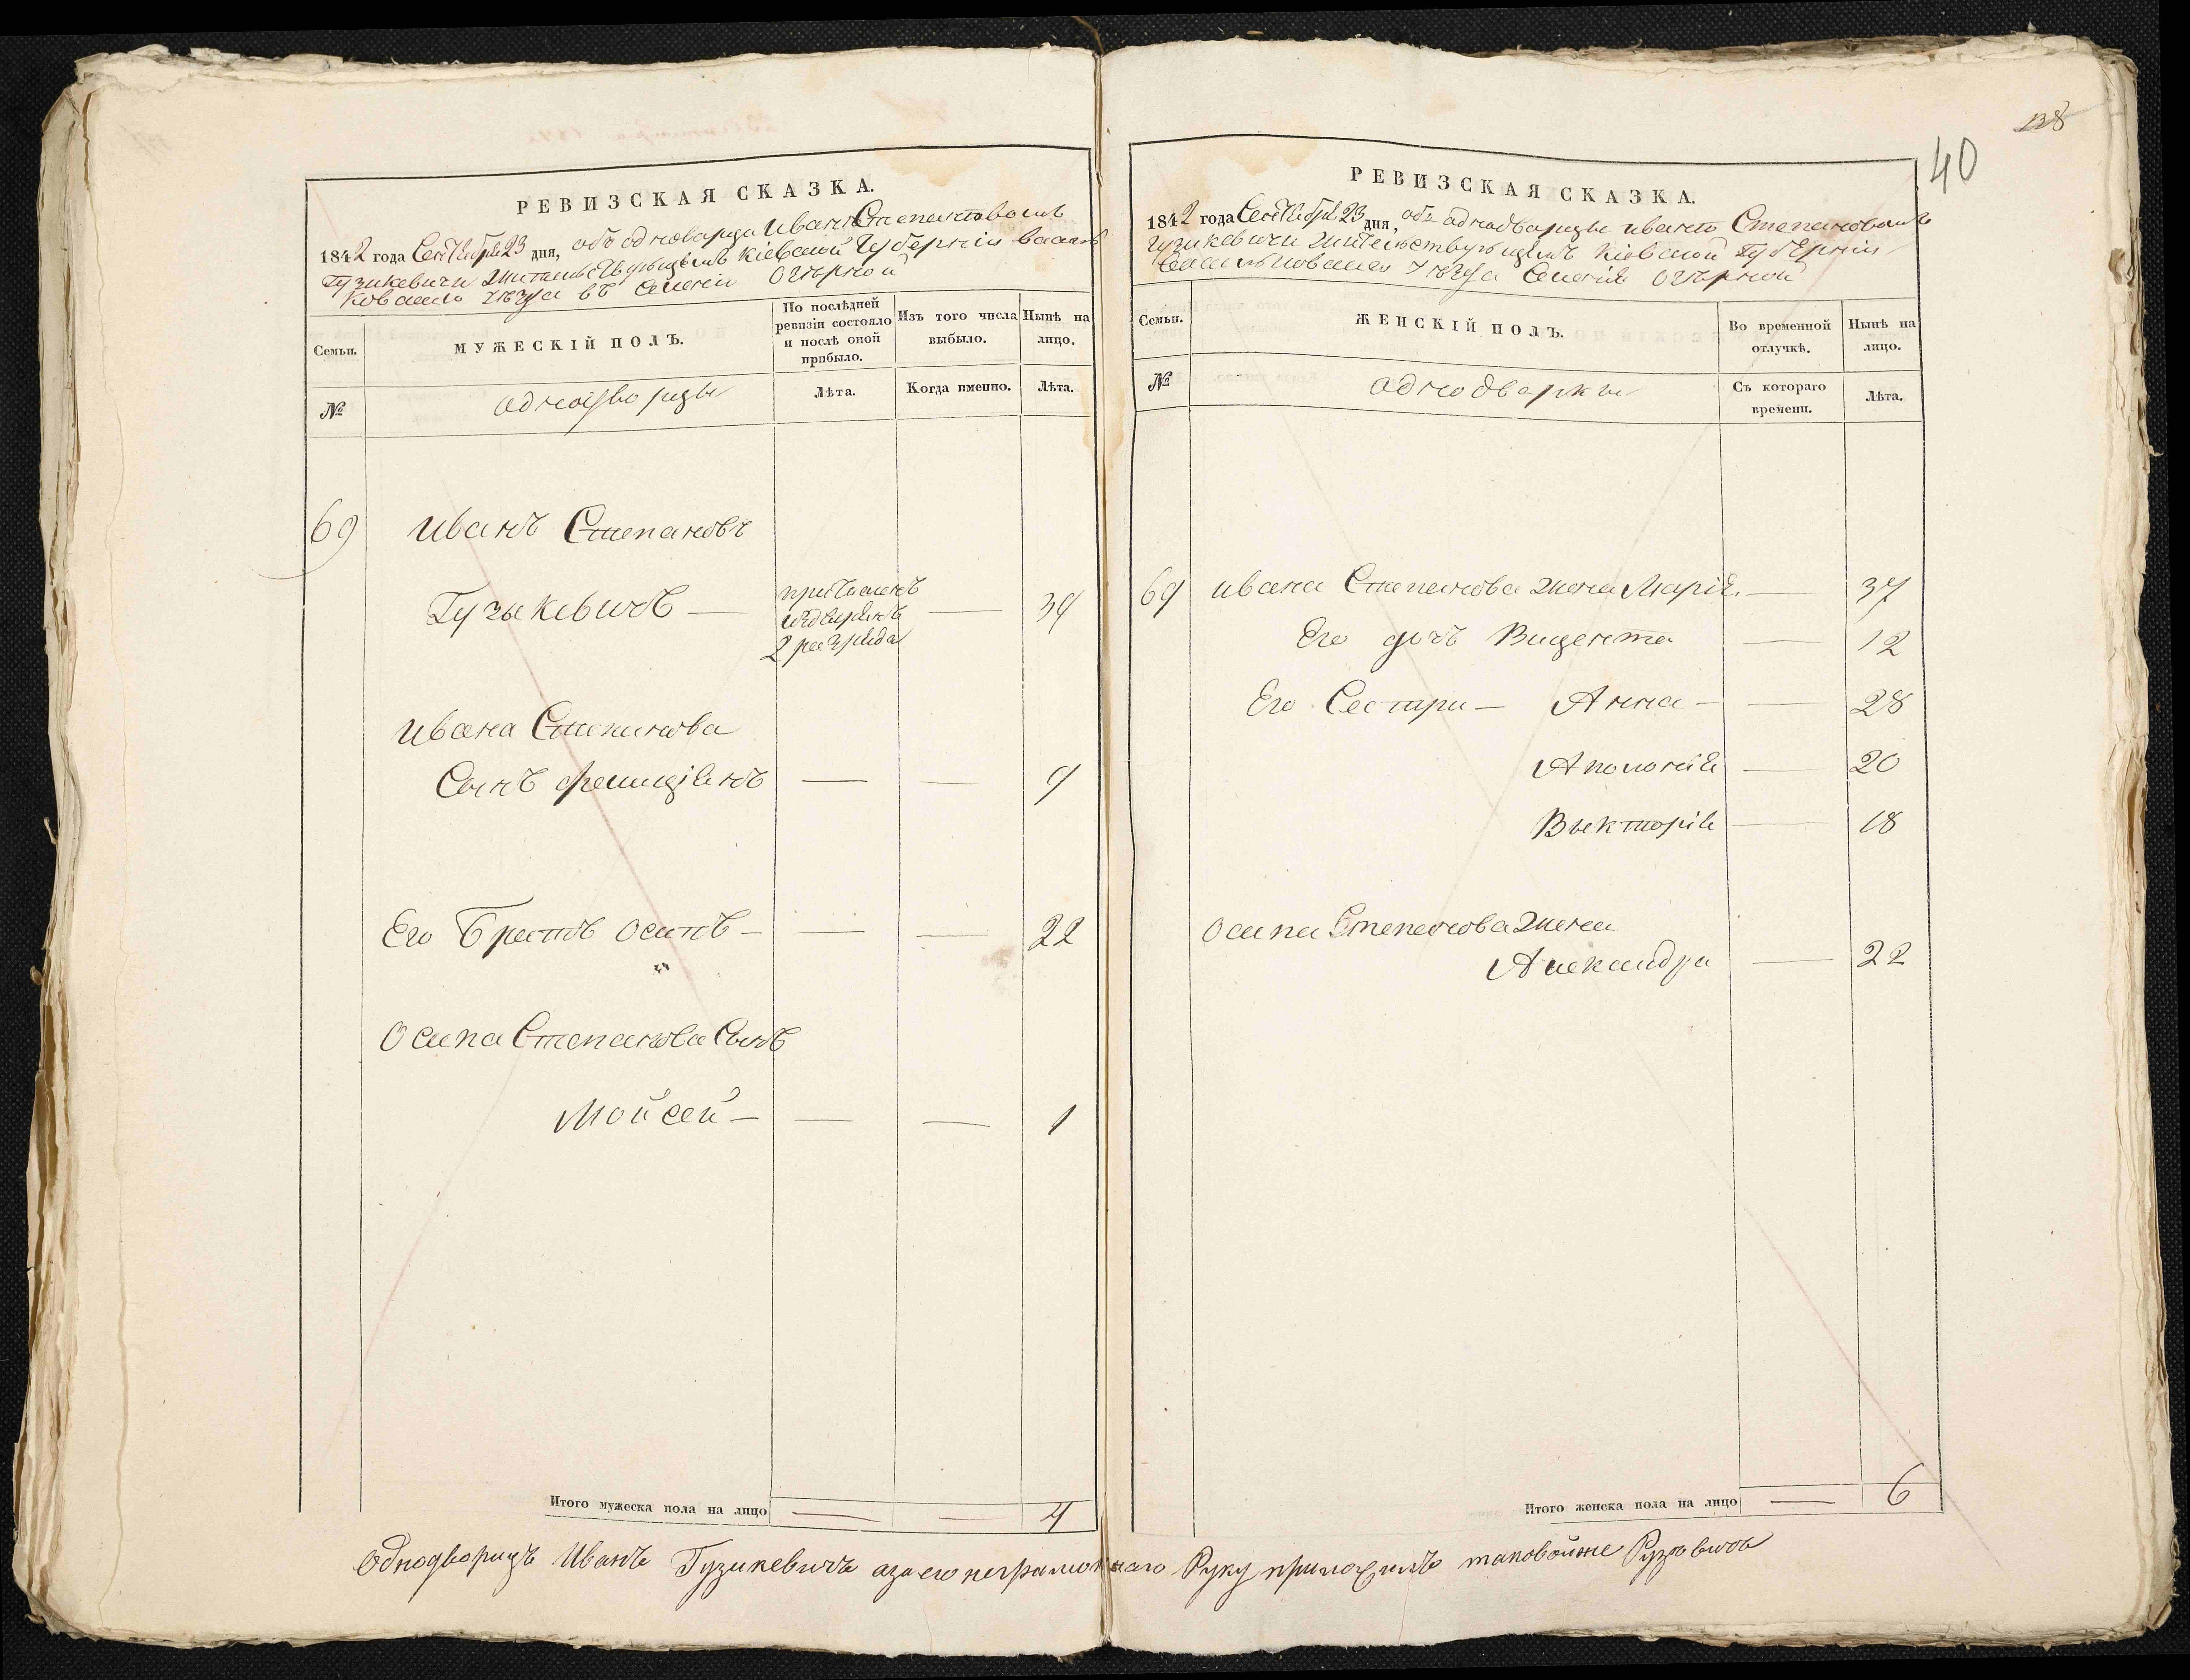 138
40
РЕВИЗСКАЯ СКАЗКА.
1842 года Сентября 23 дня, объ одноварци Иванъ Степановомъ
Гузикевичи жительствующемъ Кіевской Губерніи Василь
ковского уезда въ селеніи Озѣрной
Семьи.
МУЖЕСКІЙ ПОЛЪ.
По послѣдней ревизіи состояло и послѣ оной прибыло.
Изъ того числа выбыло.
Нынѣ на лицо.
№
однодворцы
Лѣта.
Когда именно.
Лѣта.
69 Иванъ Степановъ
Гузыкевичъ — — 39
2 разряда
Ивана Степанова
Сынъ Фелиціянъ — — 9
Его Братъ Осипъ — — — 22
Осипа Степанова Сынъ
Мойсей — — — 1
Итого мужеска пола на лицо — — 4
РЕВИЗСКАЯ СКАЗКА.
1842 года Сентября 23 дня, объ аднадварцы ивано Степановомъ
Гузикевичи жительствующимъ Кіевской Губерніи
Васильковского уезда Селенія Озѣрной
Семьи.
ЖЕНСКІЙ ПОЛЪ.
Во временной отлучкѣ.
Нынѣ на лицо.
№
однодворки
Съ котораго времени.
Лѣта.
69 ивана Степанова жена Марія. — 37
Его дочъ Вицента — 12
Его Сестри — Анна — — 28
Аполонія — 20
Выкторія — 18
Осипа Степанова жена
Александра — 22
Итого женска пола на лицо — 6
Однодворецъ Иванъ Гузикевичъ азаего неграмотнаго Руку приложилъ таковойже